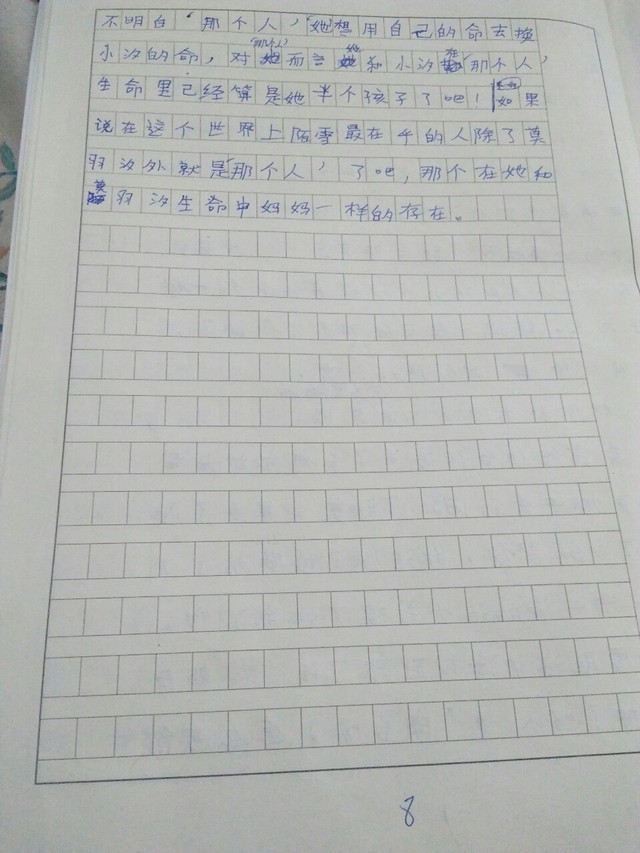 不明白‘那个人’她想用自己的命去换
小汐的命，对‘那个人’而言她和小汐在‘那个人’
生命里已经算是她半个孩子了吧！如果
说在这个世界上陌雪最在乎的人除了莫
羽汐外就是‘那个人’了吧，那个在她和
莫羽汐生命中妈妈一样的存在。
8